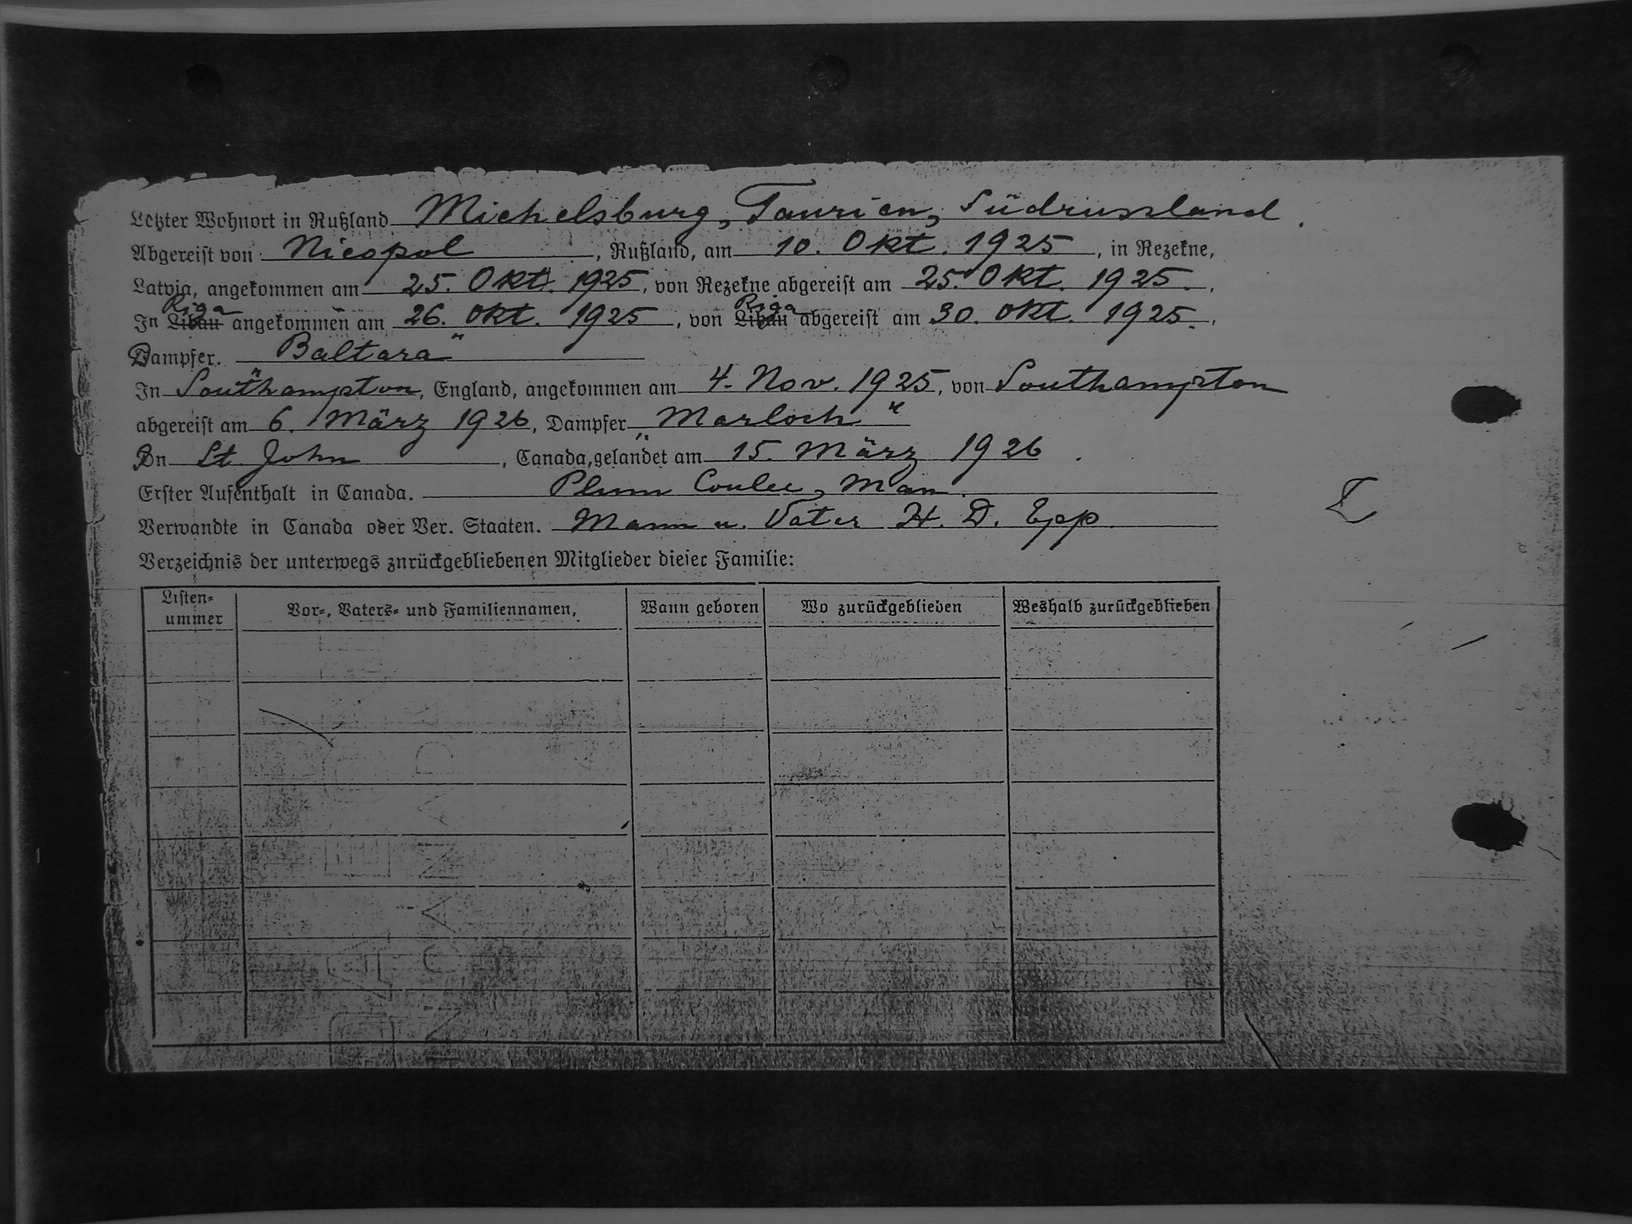 Letzter Wohnort in Rußland Michelsburg, Taurien, Südrussland.
Abgereist von Nicopol, Rußland, am 10. Okt. 1925, in Rezekne,
Latvia, angekommen am 25. Okt. 1925, von Rezekne abgereist am 25. Okt. 1925.
In Libau Riga angekommen am 26. Okt. 1925, von Libau Riga abgereist am 30. Okt. 1925.
Dampfer. Baltara"
In Southampton, England, angekommen am 4. Nov. 1925, von Southampton
abgereist am 6. März 1926, Dampfer „Marloch"
In St John, Canada, gelandet am 15. März 1926.
Erster Aufenthalt in Canada. Plum Coulee, Man.
Verwandte in Canada oder Ver. Staaten. Mann u. Vater H. D. Epp.
Verzeichnis der unterwegs znrückgebliebenen Mitglieder dieser Familie:
Listen-
ummer
Vor-, Vaters- und Familiennamen,
Wann geboren
Wo zurückgeblieben
Weshalb zurückgeblieben